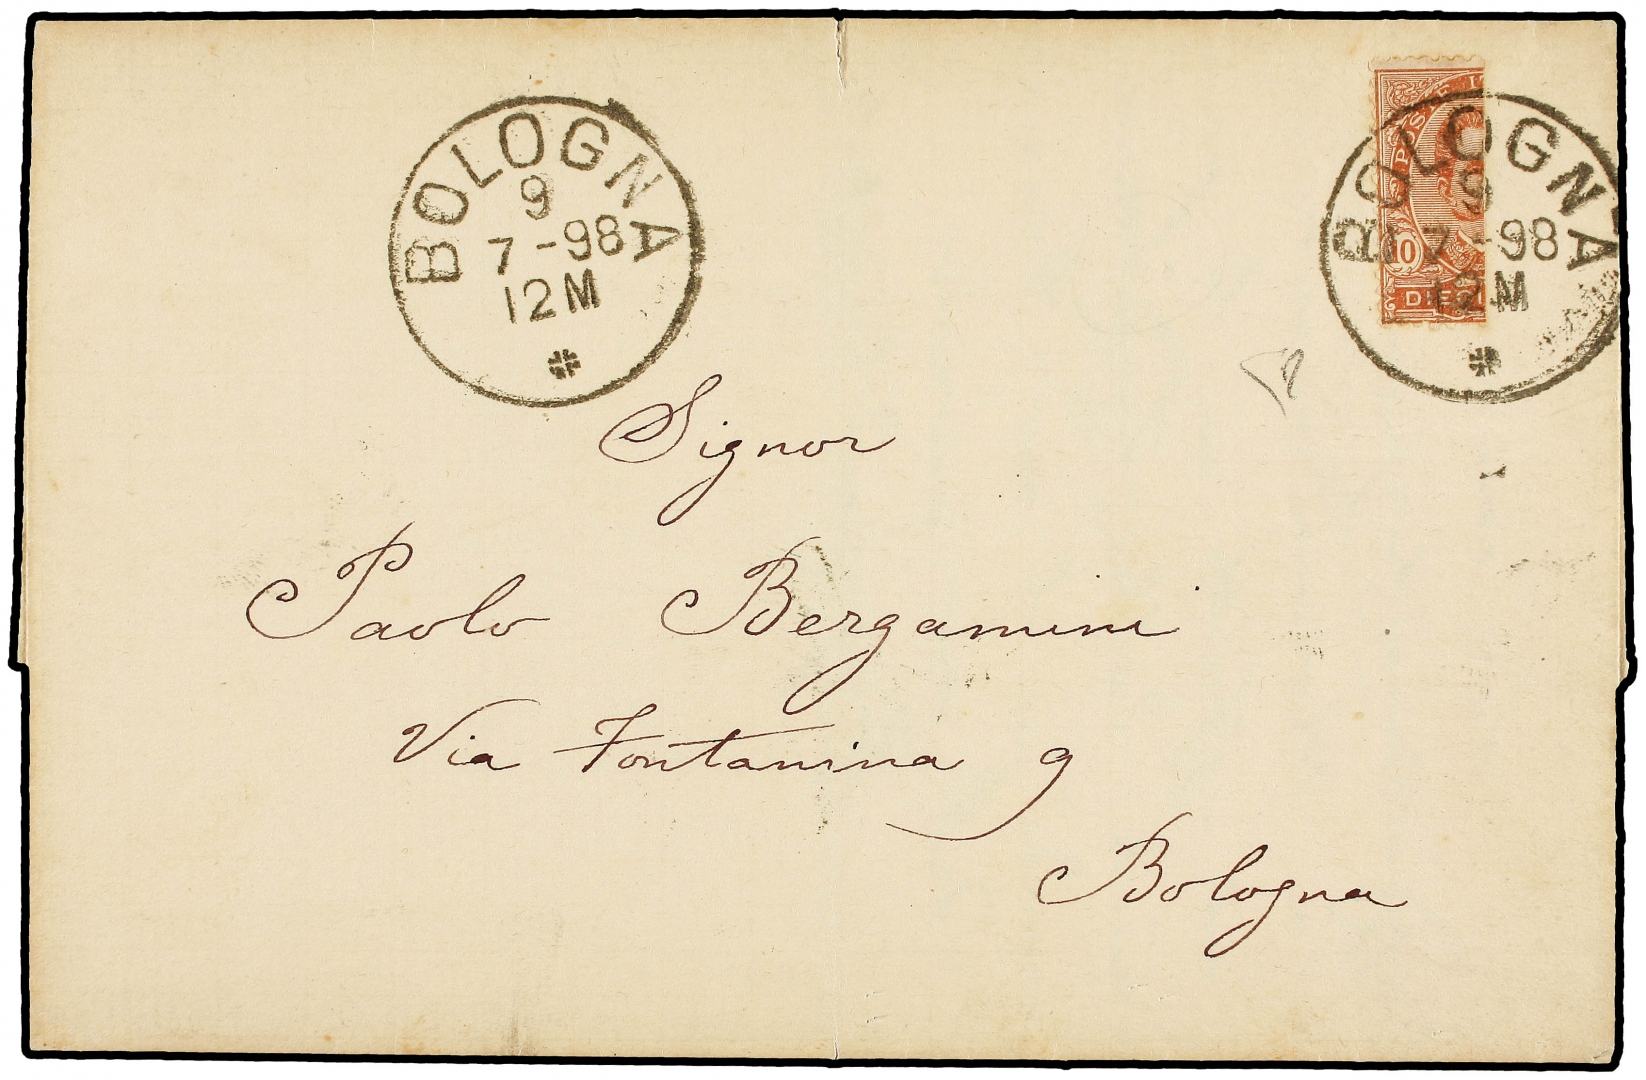 BOLOGNA
9
7-98
12M
POSTE I
10
DIECI
BOLOGNA
9
7-98
12M
Signor
Paolo Bergamini
Via Fontanina 9
Bologna